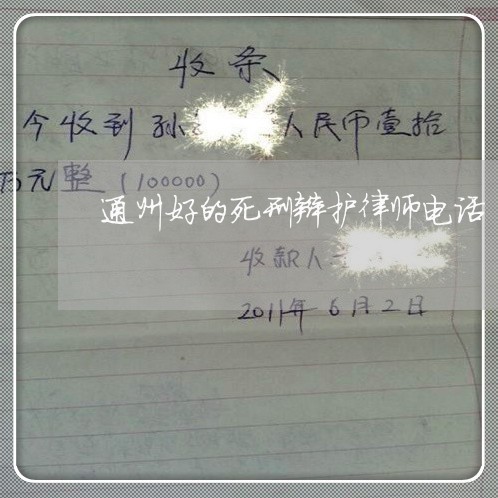 收条
今收到孙 人民币壹拾
万元整(100000)
通州好的死刑辩护律师电话
收款人
2011年6月2日